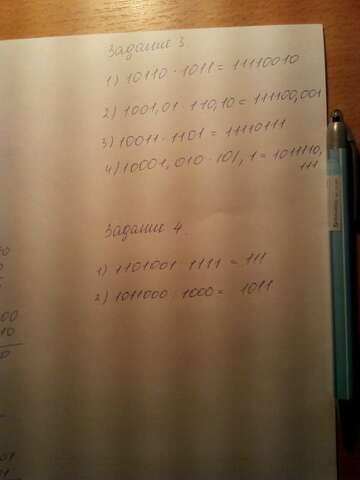 Задание 3.
1) 10110 · 1011 = 11110010
2) 1001,01 · 110,10 = 111100,001
3) 10011 · 1101 = 11110111
4) 10001,010 · 101,1 = 1011110,
111
Задание 4.
1) 1101001 : 1111 = 111
2) 1011000 : 1000 = 1011